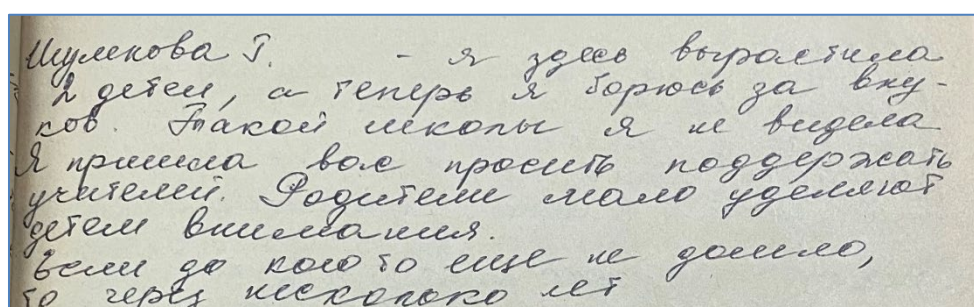 Шумкова Т. - я здесь вырастила
2 детей, а теперь я борюсь за вну-
ков. Такой школы я не видела
Я пришла вас просить поддержать
учителей. Родители мало уделяют
детям внимания.
Если до кого то еще не дошло,
то через несколько лет